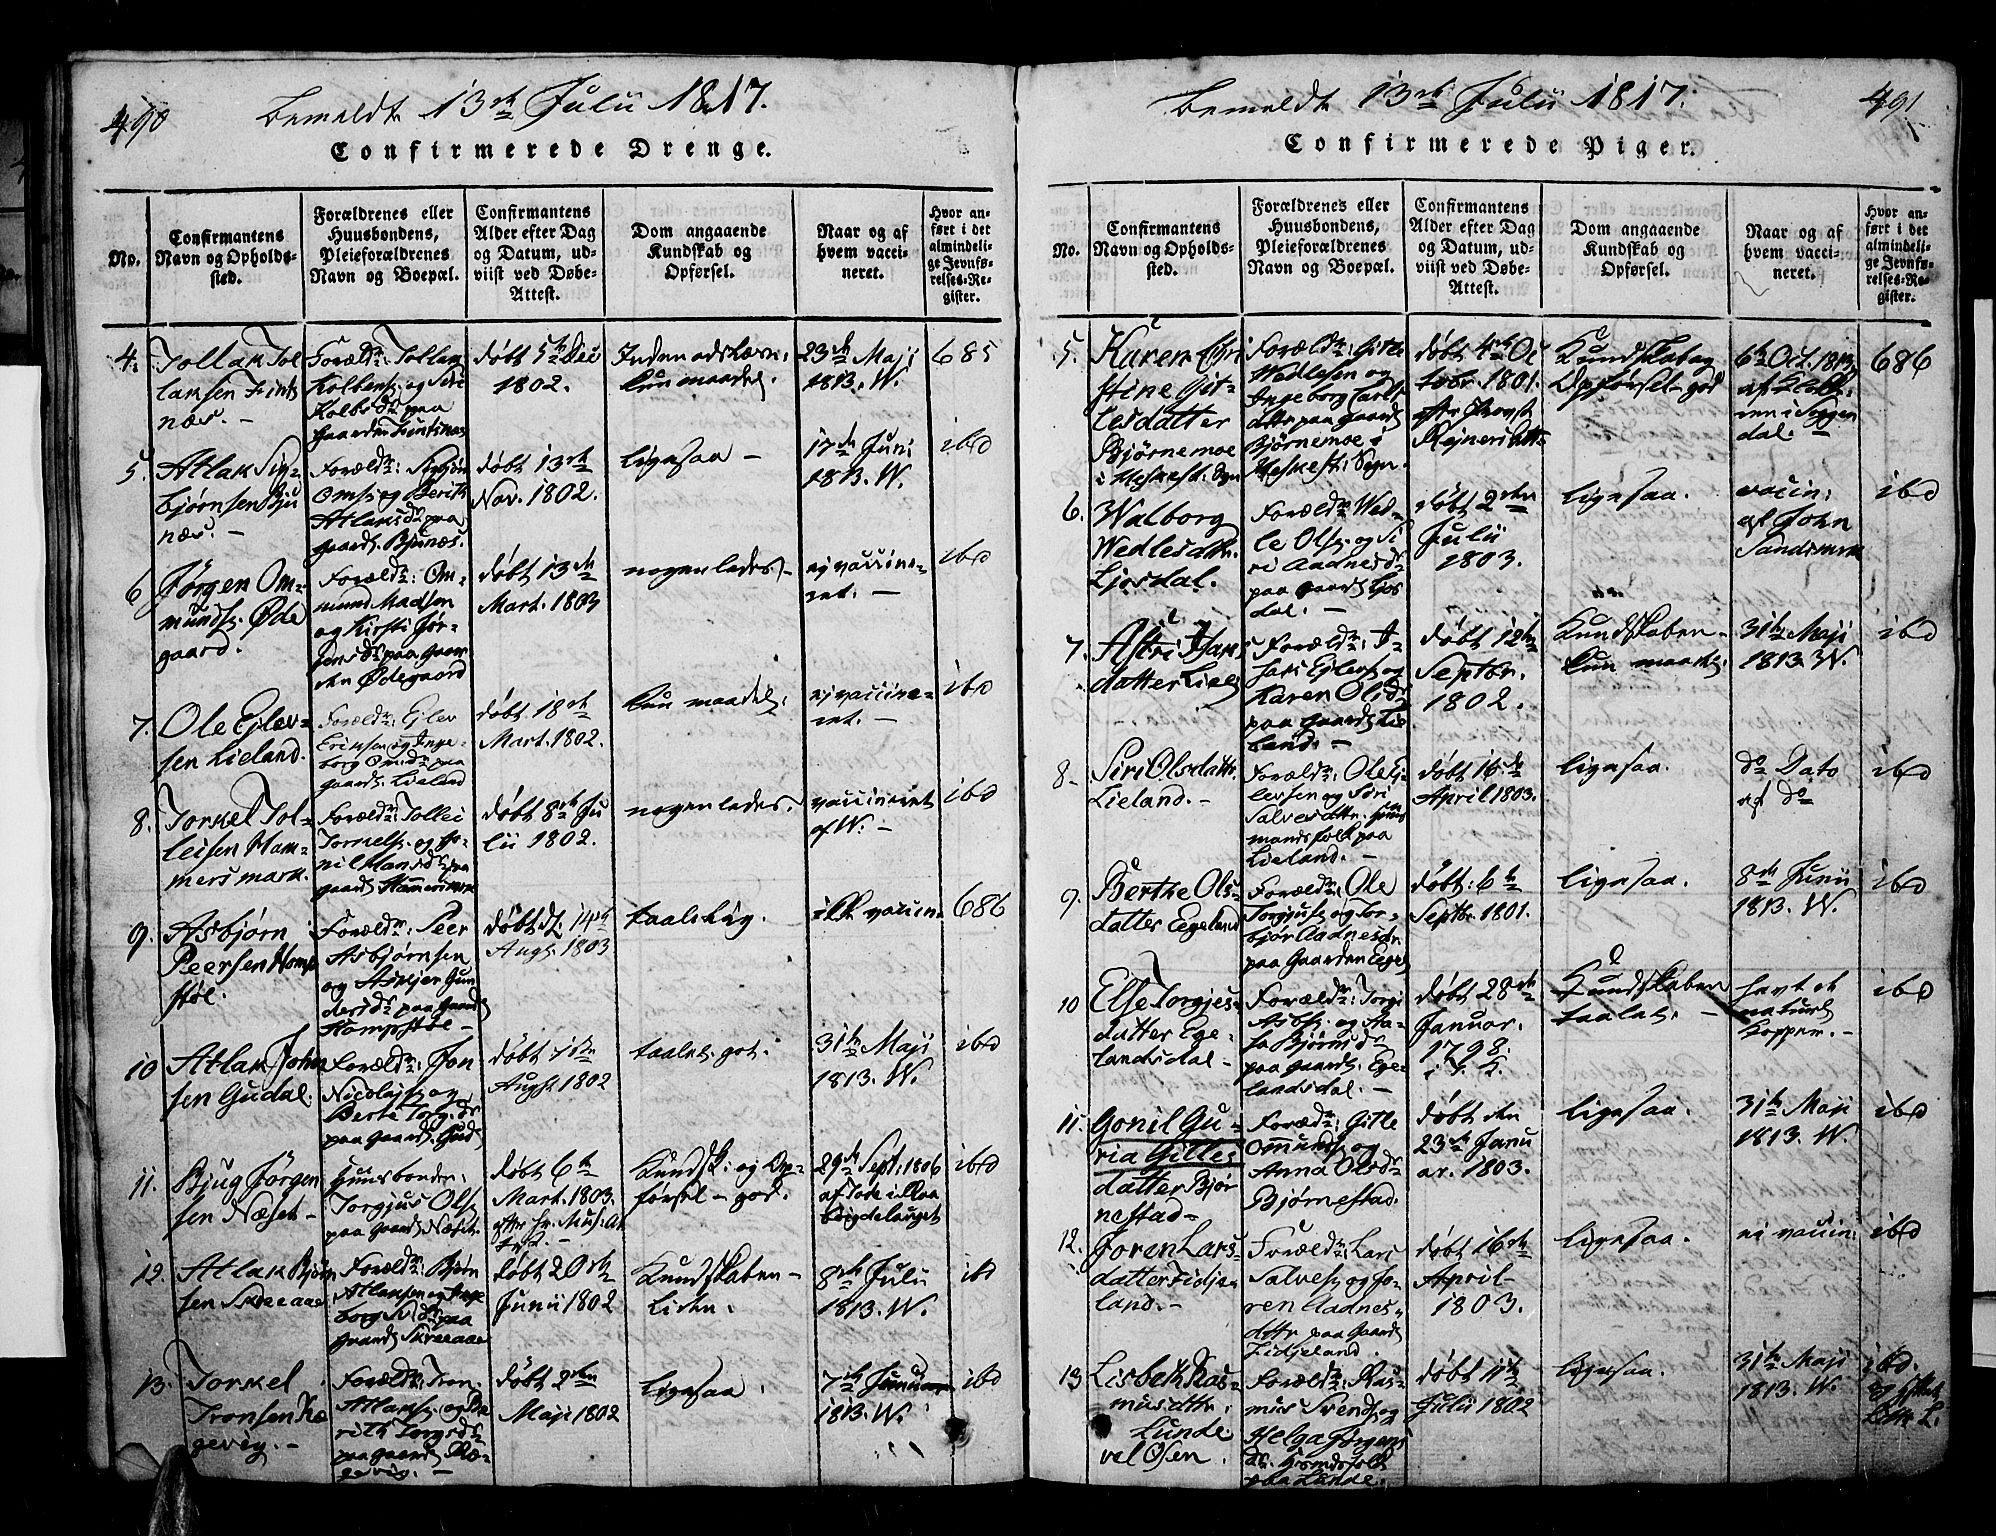 490
bemeldte 13de Julii 1817.
Confirmerede Drenge.
No.
Confirmantens
Navn og Opholds-
sted.
Forældrenes eller
Huusbondens,
Pleieforældrenes
Navn og Boepæl.
Confirmantens
Alder efter Dag
og Datum, ud-
viist ved Døbe-
Attest.
Dom angaaende
Kundskab og
Opførsel.
Naar og af
hvem vacci-
neret.
Hvor an-
ført i det
almindeli-
ge Jevnfø-
relses-Re-
gister.
4.
Tollak Tol
laksen
næs. -
Foræld: Tollak
paa
døbt 5te Dec
1802.
kun maadel.
23de Maji
1813. W.
685
5.
Atlak Sig-
bjørnsen Bju
næs. -
Foræld: Sigbjørn
Oms. og Berith
Atlaksdr paa
gaard. Bjunæs.
døbt 13de
Nov. 1802.
ligesaa -
17de Juni
1813. W.
ibd
6
Jørgen Om-
munds. Øde
gaard.
Foræld: Om-
mund Madsen
og Kirsti Jør-
gensdr paa Gaar
den Ødegaard
døbt 13de
Mart. 1803
nogenledes -
ej vaccine-
ret. -
ibd
7.
Ole Ejlev-
sen Lieland.
Foræld: Ejlev
Erichsen og Inge-
borg Omdr paa
gaard. Lieland
døbt 18de
Mart. 1802.
kun maadel.
ej vaccine-
ret. -
ibd
8.
Torkel Tol-
leisen Ham-
mersmark.
Foræld: Tollei
Torkels. og Go-
nil Hansdr paa
gaard. Hammersmark
døbt 8de Ju
lii 1802.
nogenledes.
vaccineret
af W. -
ibd
9.
Asbjørn
Peersen Homp
støl.
Foræld: Peer
Asbjørnsen
og Askjer Gun
dersdr paa Gaard.
Hompstøl -
døbt d. 14de
Augs. 1803
taalelig.
ikke vaccin.
686
10
Atlak John
sen Gudal.
Foræld: Jon
Nicolajs. og
Berte Torg.dr
paa Gaard. Gud.
døbt
Augst. 1802
taalel. got.
31te Maji
1813. W.
ibd
11.
Bjug Jørgen
sen Næset -
Huusbonde:
Torgjus Ols.
paa Gaard. Næset.
døbt 6te
Mart. 1803.
Kundsk: og Op-
førsel - god.
29de Sept: 1806
ibid
12.
Atlak Bjørn
sen Skreeaae
Foræld: Bjørn
Atlaksen og Inge
borg
paa
Gaard. Skreeaae
døbt 20de
Junii 1802
Kundskaben -
8de Julii
1813. W.
ibd
13.
Torkel
Tronsen Ræ
gevig. -
Foræld: Tron
Atlaks. og Be
rith Torgsdr
paa gaard. Ræ-
gevig. -
døbt 2den
Maji 1802
ligesaa.
7de Januar
1813. W.
ibd
491
bemeldte 13de Julii 1817.
Confirmerede Piger.
No.
Confirmantens
Navn og Opholds-
sted.
Forældrenes eller
Huusbondens,
Pleieforældrenes
Navn og Boepæl.
Confirmantens
Alder efter Dag
og Datum, ud-
viist ved Døbe-
Attest.
Dom angaaende
Kundskab og
Opførsel.
Naar og af
hvem vacci-
neret.
Hvor an-
ført i det
almindeli-
ge Jevnfø-
relses-Re-
gister.
5.
Karen Chri
stine Git-
lesdatter
Bjørnemoe
i Heskest: Sogn
Foræld: Gitle
Wedlesen og
Ingeborg Carls
dttr paa Gaard.
Bjørnemoe i
Heskest: Sogn.
døbt 4de Oc
tobr. 1801.
efter Provst
Kundskab og
Opførsel - god
6te Oct. 1813
i Soggen
dal. -
686
6.
Walborg
Wedlesdtr.
Ljosdal.
Foræld: Wed-
le Ols. og Si
ri Aadnesdr
paa gaard. Ljos
dal. -
døbt 2den
Julii
1803.
ligesaa.
vaccin:
af John
Sandsmark
ibd
7.
Astri Isaks
datter Liel.
Foræld: I-
sak Ejlevs. og
Karen Olsdr
paa Gaard. Lie
land. -
døbt 12te
Septbr.
1802.
Kundskaben -
kun maadel.
31te Maji
1813. W.
ibd
8.
Siri Olsdattr.
Lieland. -
Foræld: Ole Ej-
levsen og Siri
Salvesdttr. Huus
mandsfolk paa
Lieland. -
døbt 16de
April 1803.
ligesaa.
do Dato
af do
ibd
9.
Berthe Ols-
datter Egeland
Foræld: Ole
Torgjus. og Tor-
bjør Aadnesdr
paa Gaarden Egel.
døbt: 6te
Septbr. 1801.
ligesaa.
8de Junii
1813. W.
ibd
10
Else Torgjes-
datter Ege-
landsdal -
Foræld: Torgi
Asbs. og Aa-
sa Bjørnsdr
paa Gaard. Ege-
landsdal. -
døbt 28de
Januar.
1798.
Kundskaben
taalel. -
havt de
naturl.
Kopper. -
ibd
11.
Gonil Gu-
ria Gitles
datter Bjør
nestad -
Foræld: Gitle
Ommunds. og
Anna Olsdr
Bjørnestad.
døbt den
23de Janu
ar. 1803.
ligesaa.
31te Maji
1813. W.
ibd
12.
Joren Lars-
datter Fidje-
land. -
Foræld: Lars
Salves. og Jo-
ren Aadnes-
dttr paa Gaard.
Fidjeland.
døbt 16de
April -
1803.
ligesaa.
ei vaccin:
ibd
13
Lisbeth Ras-
musdttr.
Lunde
vel Osen.
Foræld: Ras-
mus Svends. og
Helga Jørgens
dr. Huusmdsfolk
paa Lunde.
døbt 11te
Julii 1802
ligesaa.
31te Maji
1813. W.
ibd.